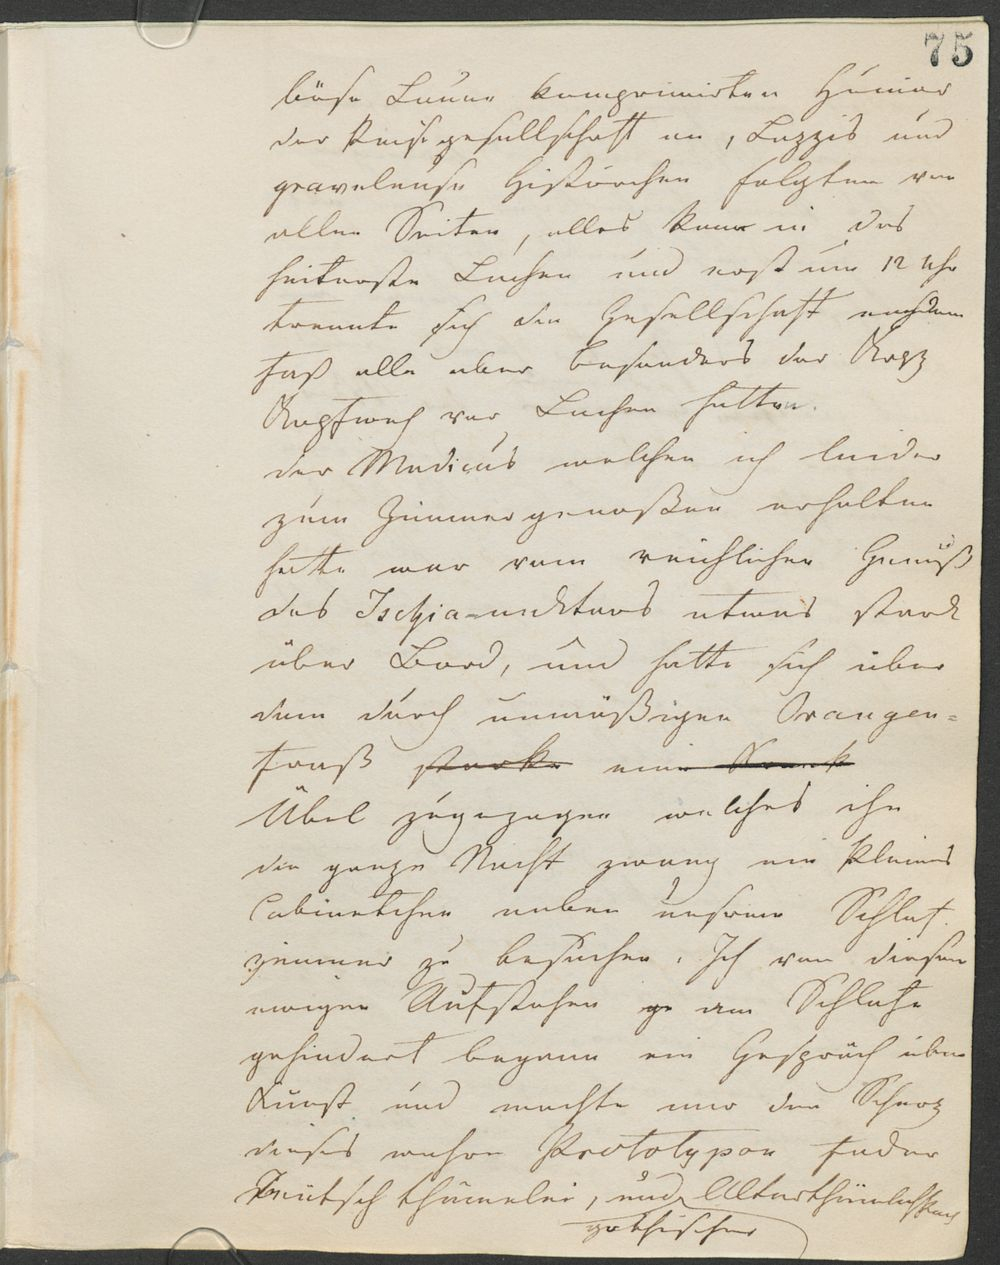 75
böse Laune komprimirten Humor
der Reisegesellschaft an, Lazzis und
graveleuse Histörchen folgten von
allen Seiten, alles kam in das
heiterste Lachen und erst um 12 Uhr
trennte sich die Gesellschaft nachdem
fast alle aber besonders der Arzt
Kopfweh vor Lachen hatten.
der Medicus welchen ich leider
zum Zimmergenoßen erhalten
hatte war vom reichlichen Genuß
des Ischia=nektars etwas stark
über Bord, und hatte sich über
dem durch unmäßigen Orangen=
fraß starke ein
Übel zugezogen welches ihn
die ganze Nacht zwang ein kleines
Cabinetchen neben unserm Schlaf
zimmer zu besuchen. Ich von diesem
ewigen Aufstehen am Schlafe
gehindert begann ein Gespräch über
Kunst und machte mir den Scherz
dieses wahre Prototypon fader
Teutschthümelei, und Alterthümlichkeit
gothischer